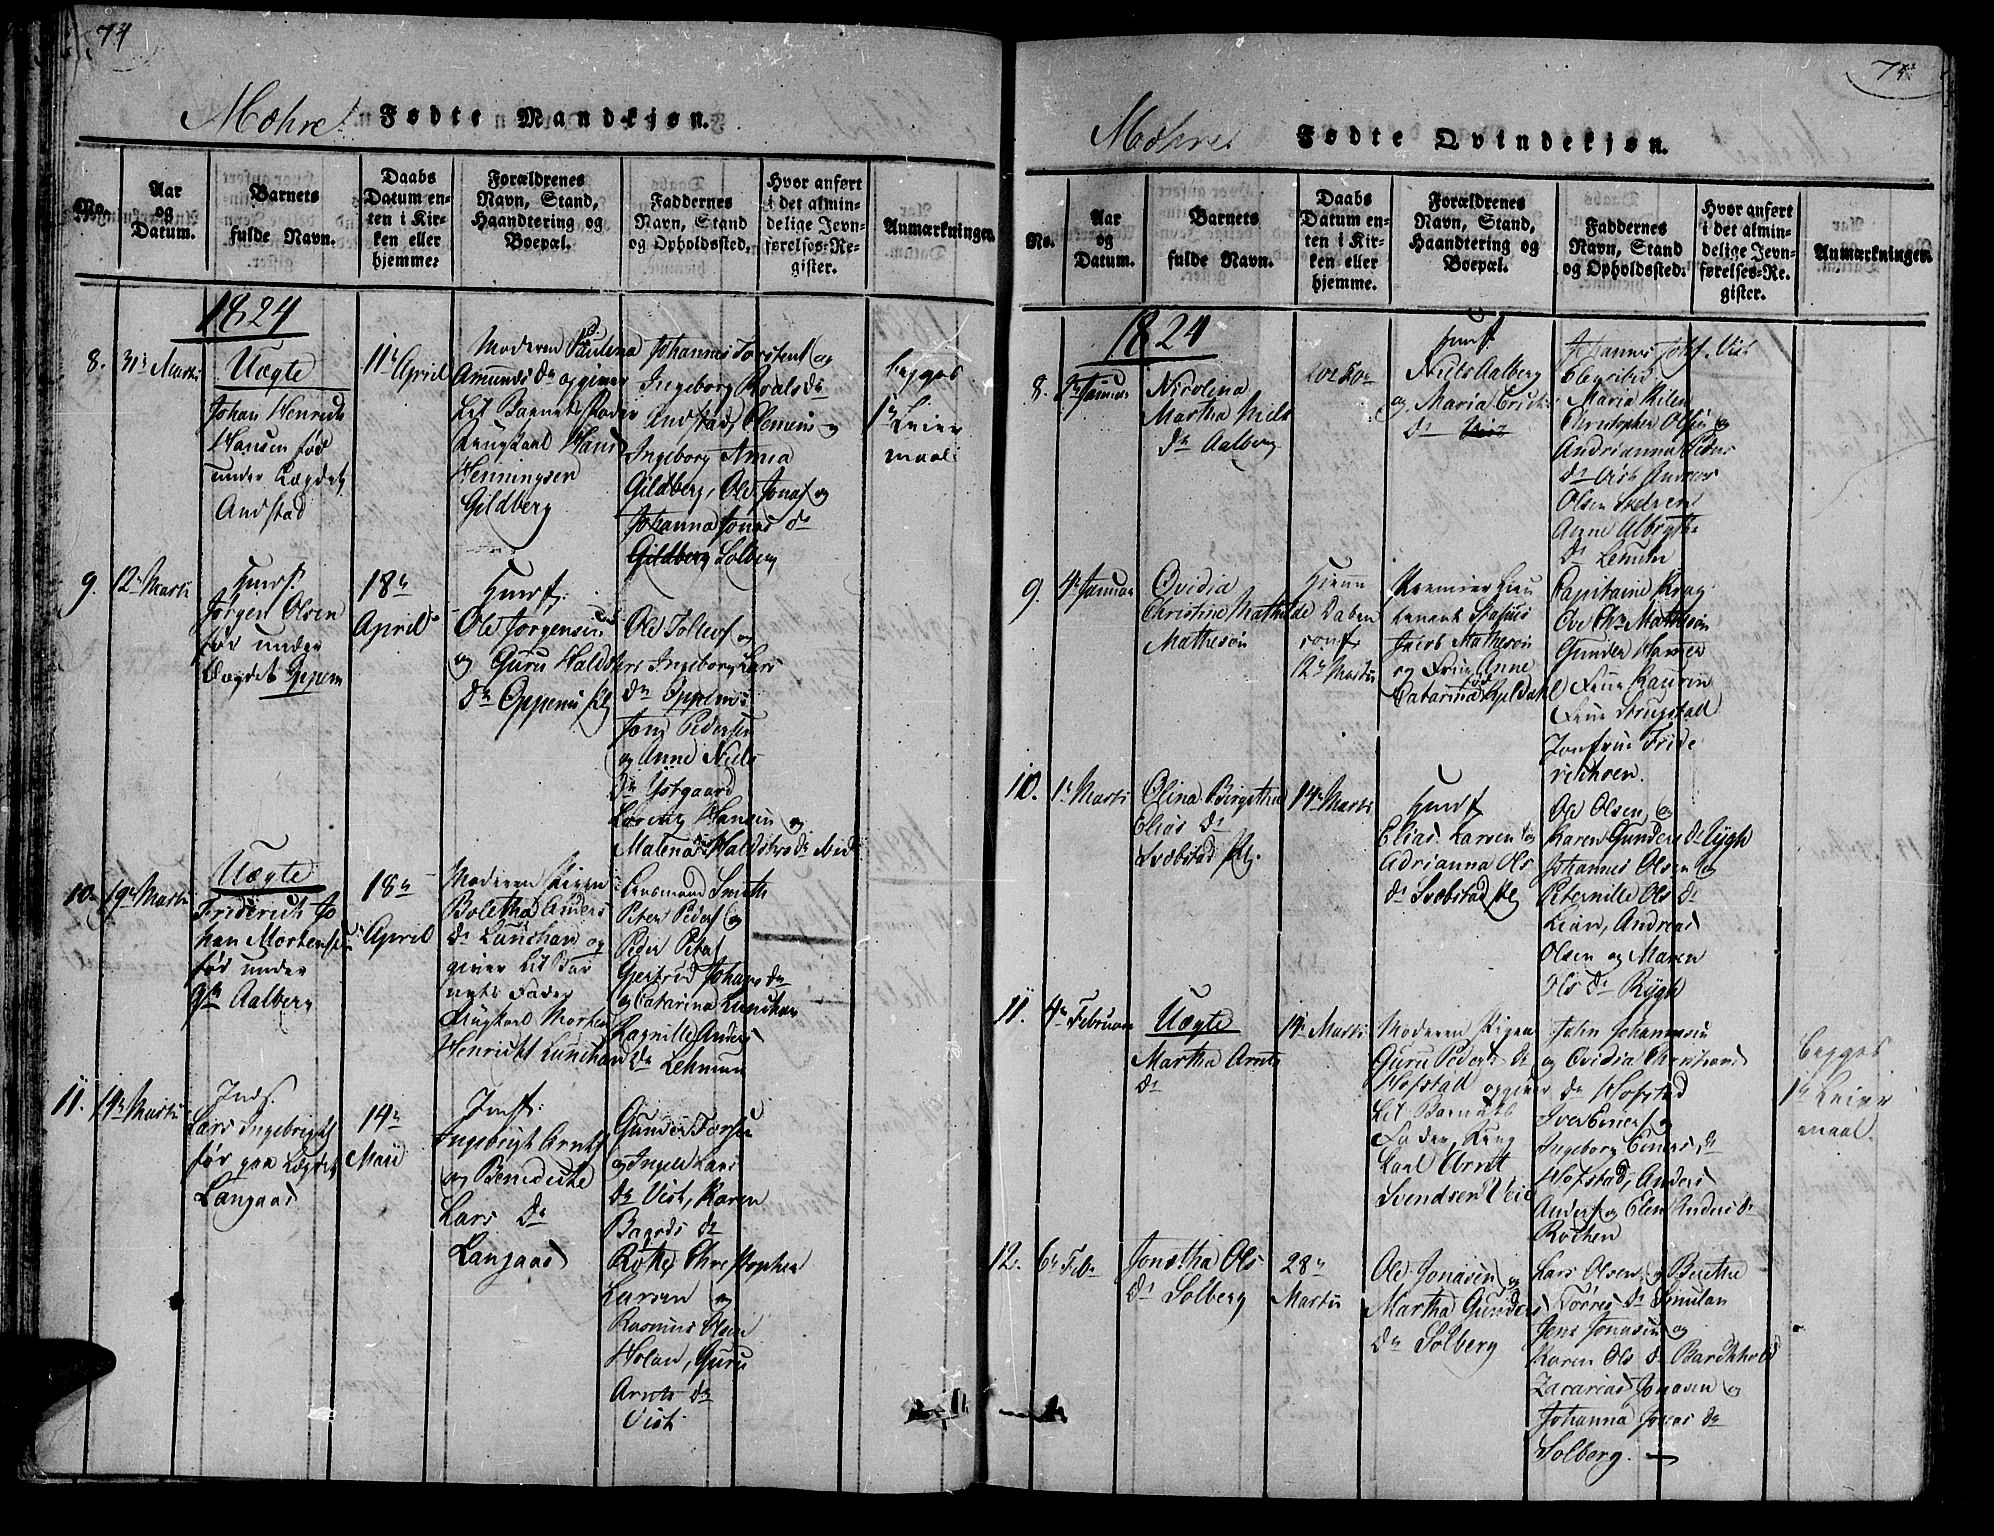 74
Mæhre Fødte Mandkjøn.
No.
Aar
og
Datum.
Barnets
fulde Navn.
Daabs
Datum en-
ten i Kir-
ken eller
hjemme:
Forældrenes
Navn, Stand,
Haandtering og
Boepæl.
Faddernes
Navn, Stand
og Opholdssted.
Hvor anført
i det almin-
delige Jevn-
førelses-Re-
gister.
Anmærkninger.
1824
8. 31te Marti
Uægte
Johan Henrich
Hansen fød
under Lægdet
Andstad
11te April
Moderen Paulena
Amunds Dr opgiver
til Barnets Fader
Ungkarl Hans
Henningsen
Gildberg
Johannes Torstens og
Ingeborg Roals Dr
Andstad, Clemens og
Ingeborg Anna
Gildberg, Ole Jonas og
Johanna Jonas Dr
Gildberg Solberg
begges
1te Leier
maal
9. 12te Marti
Huusf.
Jørgen Olsen
fød under
Lægdet Oppem
18de
April
Huusf:
Ole Jørgensen
og Guru Haldsters
Dr Oppem
Ole Tollefs og
Ingeborg Lars
Dr Oppem
Jens Pedersen
og Anne Niels
Dr Østgaard
Lorentz Hansen og
Malena
10. 19de Marti
Uægte
Friderich Jo
han Mortensen
fød under
Aalberg
18de
April
Moderen Pigen
Boletha Anders
Dr Lunchan op
giver til Bar
nets Fader
Ungkarl Morten
Henricht Lunchan
Lensmand Smith
Peter Peders og
Peder Peters
Gjertrud Johans Dr
og Catarina Lunchan
Ragnille Anders
Dr Lehmun
11. 14de Marti
Inds.
Lars Ingebrigts
fød paa Lægdet
Langaas
14de
Maii
Indst:
Ingebrigt Arnts
og Benedicte
Lars Dr
Langaas
Gunder
og Ingeb Lars
Dr Vist, Karen
Baards Dr
Røthe, Christopher
Larsen og
Rasmus Olsen
Holan, Guru
Arnts Dr
Vist.
Mæhre Fødte Qvindekjøn.
No.
Aar
og
Datum.
Barnets
fulde Navn.
Daabs
Datum en-
ten i Kir-
ken eller
hjemme.
Forældrenes
Navn, Stand,
Haandtering og
Boepæl.
Faddernes
Navn, Stand
og Opholdssted:
Hvor anført
i det almin-
delige Jevn-
førelses-Re-
gister.
Anmærkninger.
1824
8.
Nicolina
Martha Niels
Dr Aalberg
Huusf.
Niels Aalberg
og Maria Erichs
Dr Vist
Johannes
Maria
Christopher Olsen og
Andrianna Peders
Dr Vist Andreas
Olsen
Anne Albrigts
Dr Lemun
9. 4de Januar
Ovidia
Christine Mathilde
Mathesøn
Hjemme
Daben
conf
12te Martii
Premier Lieu
tenant
Jacob Mathesøn
og Frue Anne
Catarina fød Kjeldahl
Capitaine Krag
Ove Chr Mathesøn
Gunder Hansen
Frue Laurin
Frue Krugstall
Jomfrue Fride
richsen.
10. 1te Marti
Olina Birgitha
Elias Dr
Svæbstad
14de Marti
Huusf
Elias Larsen og
Adrianna Ols
Dr Svæbstad
Ole Olsen og
Karen Gunders Dr Rygh
Johannes Olsen og
Peternille Ols Dr
Leian, Andreas
Olsen og Maren
Ols Dr Rygh
11. 4de Februar
Uægte
Martha Arnts
Dr
14de Marti
Moderen Pigen
Guru Peders Dr
Hofstad opgiver
til Barnets
Fader, Ung
karl Arnt
Svendsen Veie
John Johannesen
og Ovidia Christians
Dr Hofstad
Iver Eners og
Ingeborg Einers Dr
Hofstad, Anders
Anders og Elen Anders Dr
Røthen
begges
1te Leier
maal.
12. 6te Feb.
Jonetha Ols
Dr Solberg
28de
Martii
Ole Jonasen og
Martha Gunders
Dr Solberg
Lars Olsen og Berethe
Torres Dr Smulan
Jens Jonasen og
Karen Ols Dr Bardkhold
Zacarias Jonasen og
Johanna Jonas Dr
Solberg.